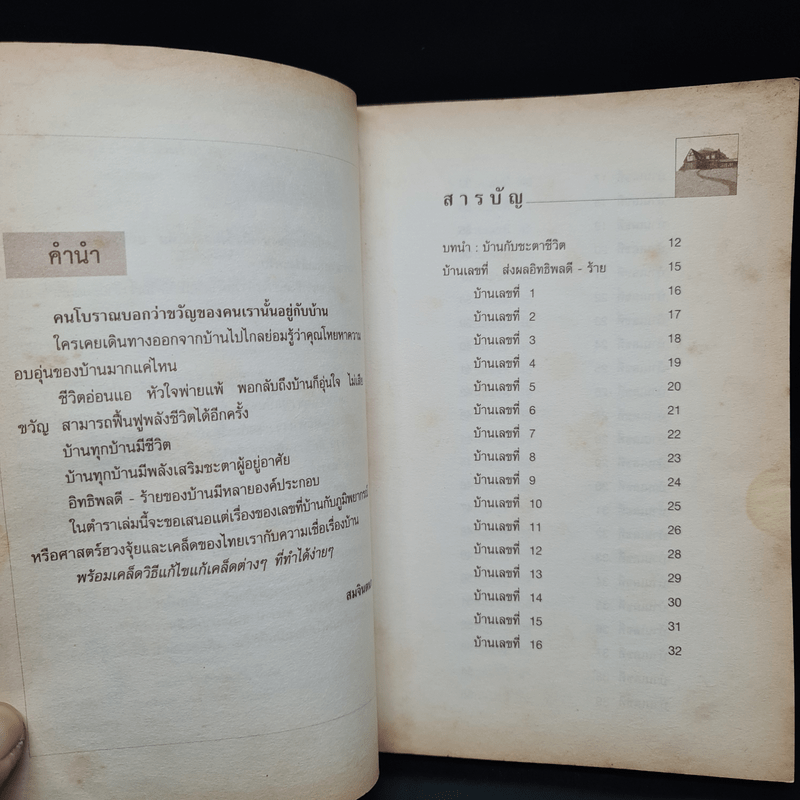 คำนำ
คนโบราณบอกว่าขวัญของคนเรานั้นอยู่กับบ้าน
ใครเคยเดินทางออกจากบ้านไปไกลย่อมรู้ว่าคุณโหยหาความ
อบอุ่นของบ้านมากแค่ไหน
ชีวิตอ่อนแอ หัวใจพ่ายแพ้ พอกลับถึงบ้านก็อุ่นใจ ไม่เสีย
ขวัญ สามารถฟื้นฟูพลังชีวิตได้อีกครั้ง
บ้านทุกบ้านมีชีวิต
บ้านทุกบ้านมีพลังเสริมชะตาผู้อยู่อาศัย
อิทธิพลดี - ร้ายของบ้านมีหลายองค์ประกอบ
ในตำราเล่มนี้จะขอเสนอแต่เรื่องของเลขที่บ้านกับภูมิพยากรณ์
หรือศาสตร์ฮวงจุ้ยและเคล็ดของไทยเรากับความเชื่อเรื่องบ้าน
พร้อมเคล็ดวิธีแก้ไขแก้เคล็ดต่างๆ ที่ทำได้ง่ายๆ
สารบัญ
บทนำ : บ้านกับชะตาชีวิต 12
บ้านเลขที่ ส่งผลอิทธิพลดี - ร้าย 15
บ้านเลขที่ 1 16
บ้านเลขที่ 2 17
บ้านเลขที่ 3 18
บ้านเลขที่ 4 19
บ้านเลขที่ 5 20
บ้านเลขที่ 6 21
บ้านเลขที่ 7 22
บ้านเลขที่ 8 23
บ้านเลขที่ 9 24
บ้านเลขที่ 10 25
บ้านเลขที่ 11 26
บ้านเลขที่ 12 28
บ้านเลขที่ 13 29
บ้านเลขที่ 14 30
บ้านเลขที่ 15 31
บ้านเลขที่ 16 32